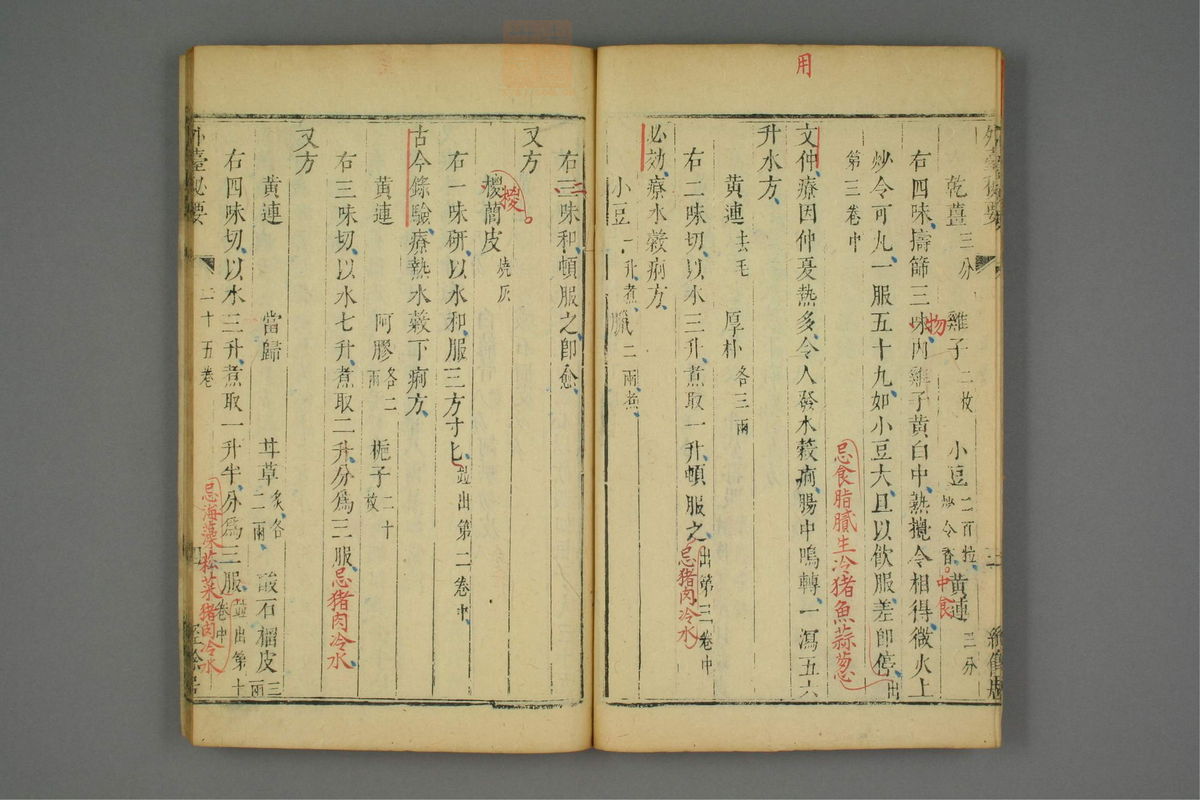 用
外臺秘要 三
乾薑三分 雞子二枚 小豆二百粒炒令香 黃連三分
右四味擣篩三味內雞子黃白中熟攪令相得微火上
物
中食
炒令可丸一服五十丸如小豆大且以飲服差即停出
第三卷中
忌食脂膩生冷猪魚蒜葱
文仲療因仲夏熱多令人發水穀痢腸中鳴轉一瀉五六
升水方
黃連去毛 厚朴各三兩
右二味切以水三升煮取一升頓服之出第三卷中
忌猪肉冷水
必效療水穀痢方
小豆一升煮 臘二兩煮
右三味和頓服之即愈
二
又方
椶蕳皮燒灰
椶
右一味研以水和服三方寸匕並出第二卷中
古今錄驗療熱水穀下痢方
黃連 阿膠各二兩 梔子二十枚
右三味切以水七升煮取二升分爲三服
忌猪肉冷水
又方
黃連 當歸 甘草炙各二兩 酸石榴皮三兩
右四味切以水三升煮取一升半分爲三服並出第十卷中
忌海藻菘菜猪肉冷水
外臺秘要 二十五卷 四 經餘居